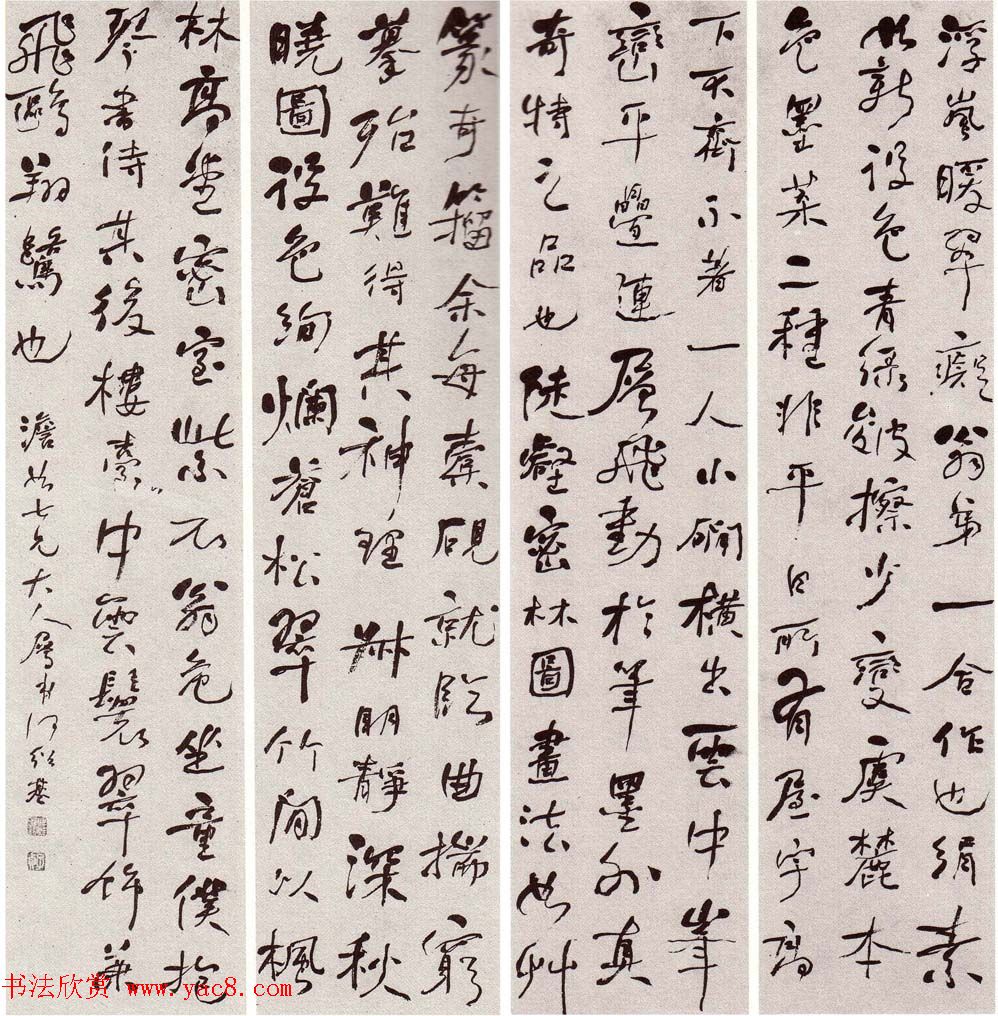 浮嵐暖翠癡翁第一合作也絹素
如新設色青綠皴擦少變虞麓本
色墨菜二種非平日所有屋宇高
下不齊不著一人小磵橫出雲中峯
巒平疊連屬飛動於筆墨外真
奇特之品也陡壑密林圖畫法如艸
篆奇籀余每囊硯就臨曲揣窮
摹殆難得其神理 淋朗靜深秋
曉圖設色絢爛蒼松翠竹間以楓
林高堂密室紫衣翁危坐童僕抱
琴書侍其後樓臺中雲鬟翠飾兼
飛鷗翔鶩也
澹如七兄大人屬書何紹基
书法欣赏 www.yac8.com